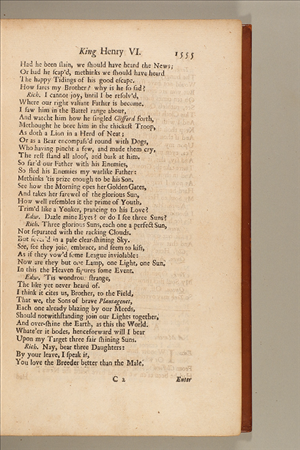 King Henry VI. 1555
Had he been slain, we should have heard the News;
Or had he scap'd, methinks we should have heard
The happy Tidings of his good escape.
How fares my Brother? why is he so sad?
Rich. I cannot joy, until I be resolv'd,
Where our right valiant Father is become.
I saw him in the Battel range about,
And watcht him how he singled Clifford forth,
Methought he bore him in the thickest Troop,
As doth a Lion in a Herd of Neat;
Or as a Bear encompass'd round with Dogs,
Who having pincht a few, and made them cry,
The rest stand all aloof, and bark at him.
So far'd our Father with his Enemies,
So fled his Enemies my warlike Father:
Methinks 'tis prize enough to be his Son.
See how the Morning opes her Golden Gates,
And takes her farewel of the glorious Sun,
How well resembles it the prime of Youth,
Trim'd like a Yonker, prancing to his Love?
Edw. Dazle mine Eyes? or do I see three Suns?
Rich. Three glorious Suns, each one a perfect Sun,
Not separated with the racking Clouds,
But sever'd in a pale clear-shining Sky.
See, see they join, embrace, and seem to kiss,
As if they vow'd some League inviolable:
Now are they but one Lamp, one Light, one Sun,
In this the Heaven figures some Event.
Edw. 'Tis wondrous strange,
The like yet never heard of.
I think it cites us, Brother, to the Field,
That we, the Sons of brave Plantagenet,
Each one already blazing by our Meeds,
Should notwithstanding join our Lights together,
And over-shine the Earth, as this the World.
Whate'er it bodes, henceforward will I bear
Upon my Target three fair shining Suns.
Rich. Nay, bear three Daughters:
By your leave, I speak it,
You love the Breeder better than the Male.
C 2 Enter